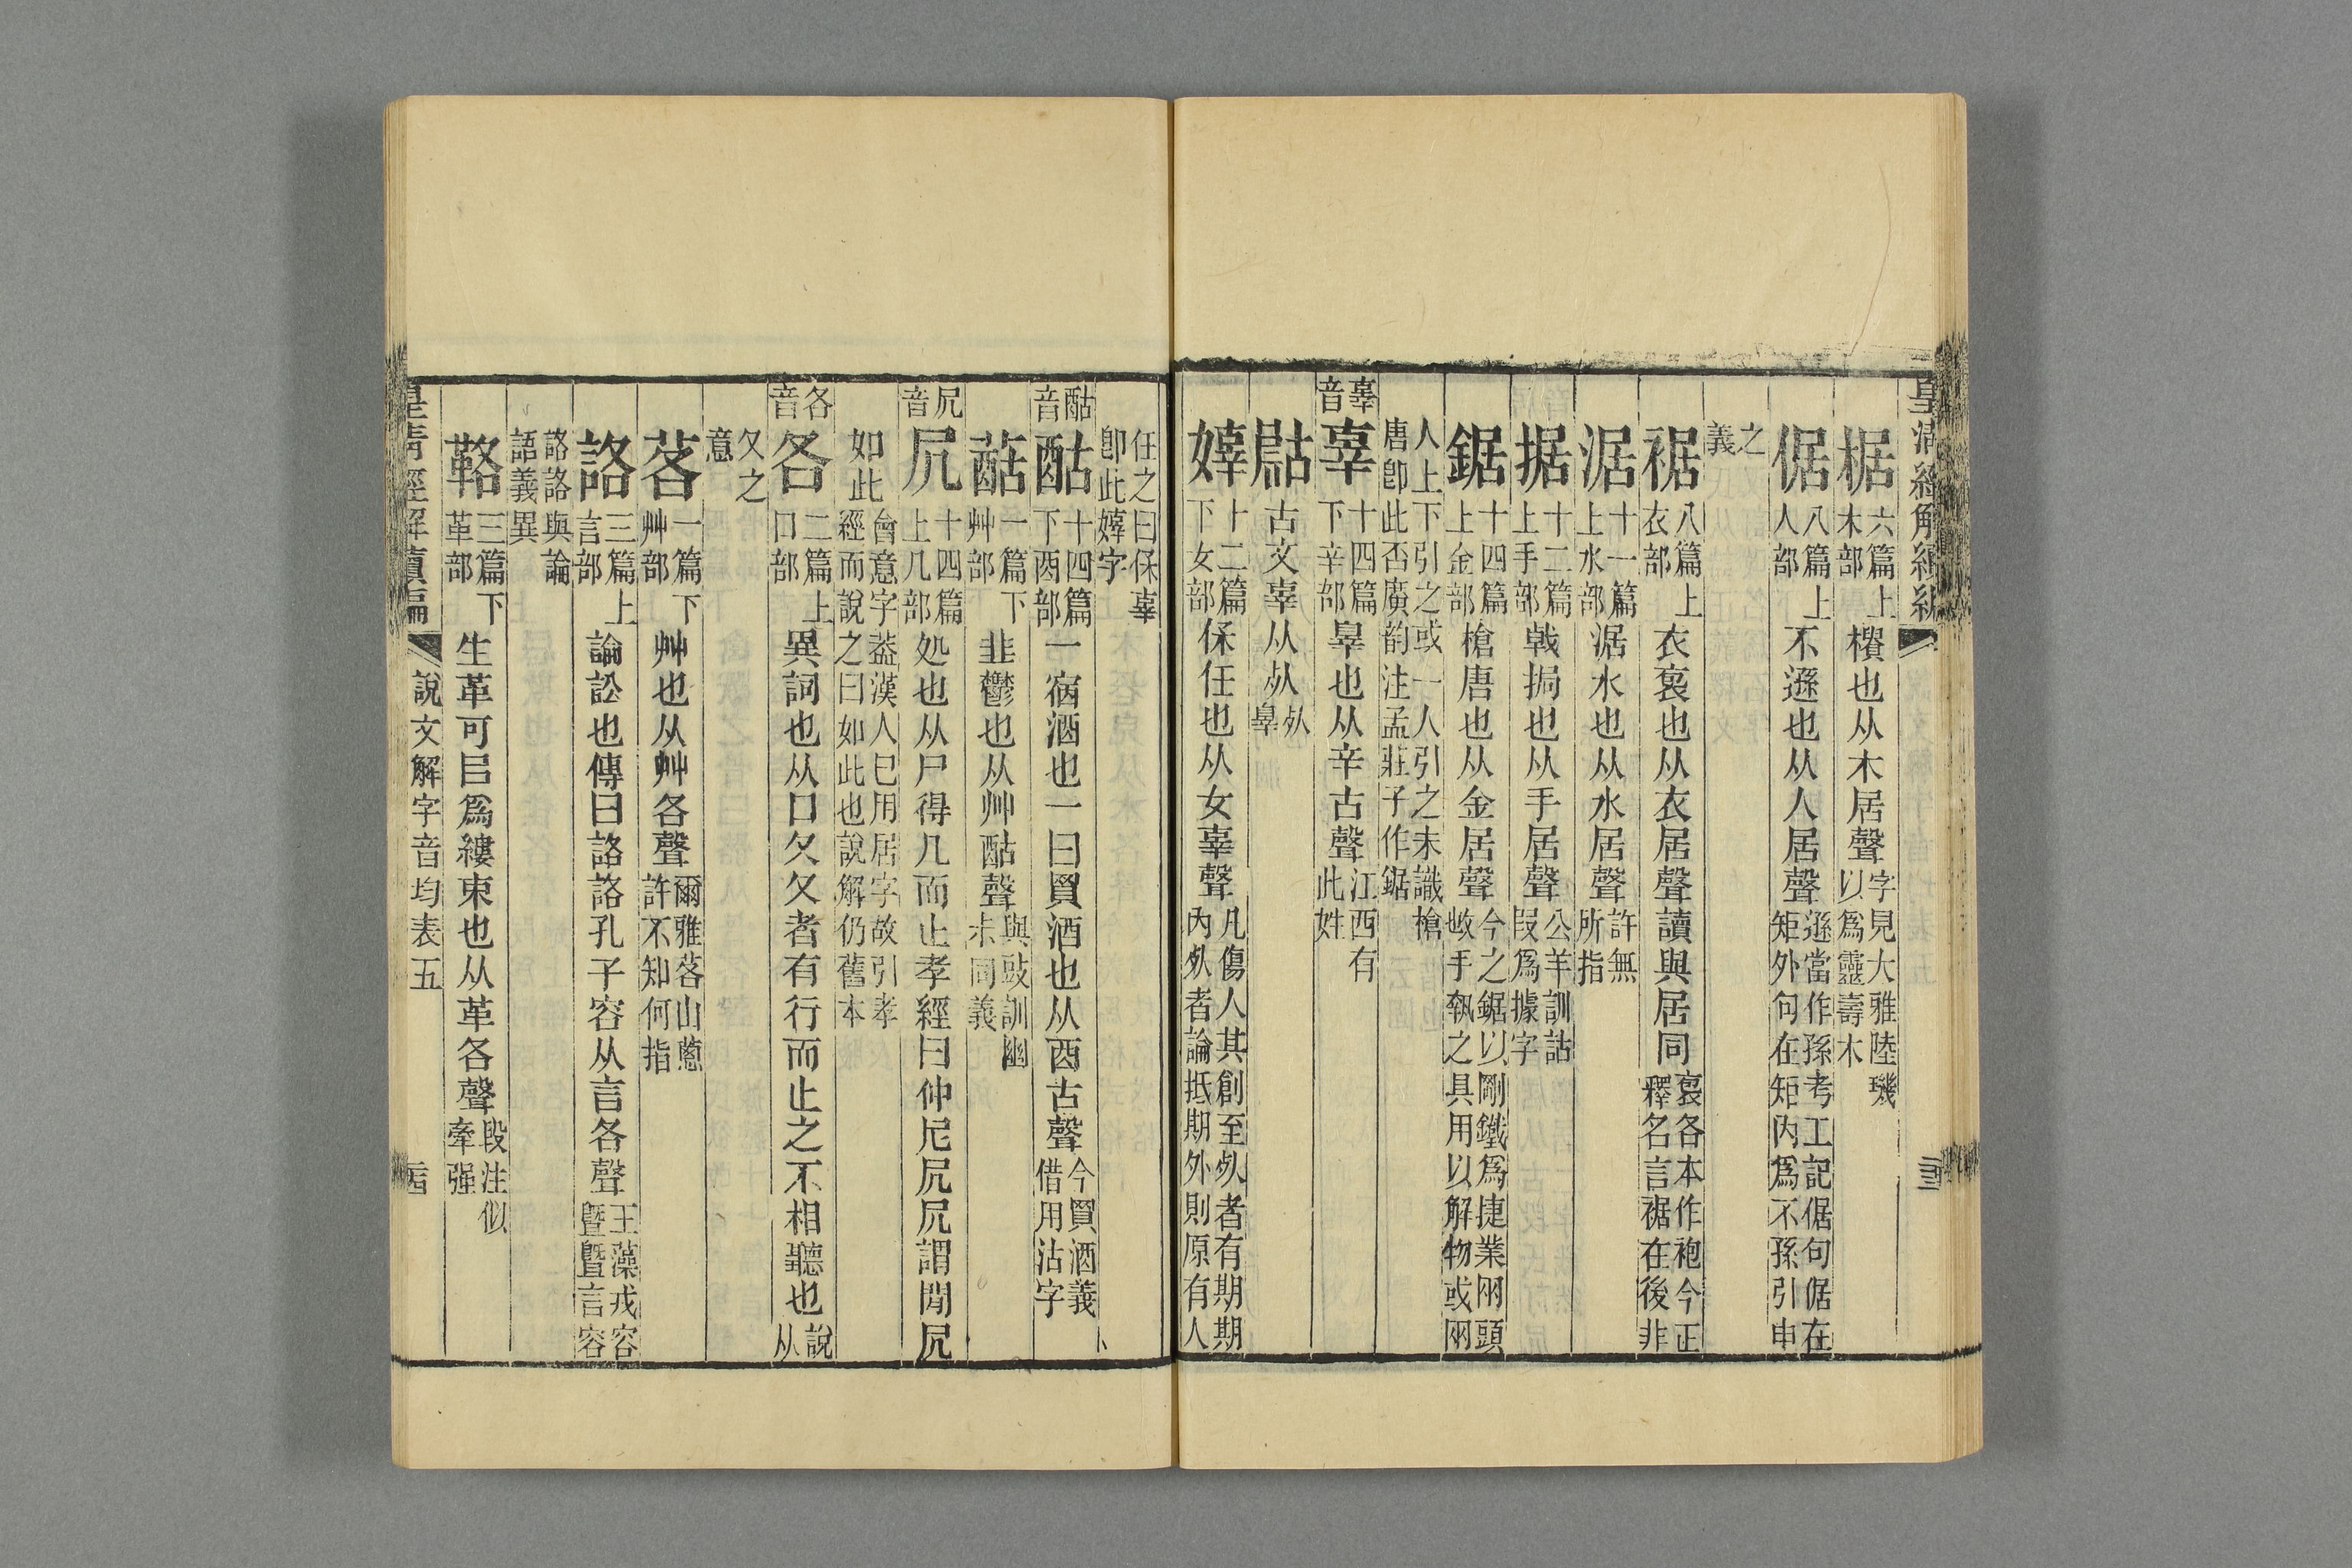 皇清經解續編
椐六篇上木部樻也从木居聲字見大雅陸璣以爲靈壽木
倨八篇上人部不遜也从人居聲遜當作孫考工記倨句倨在矩外句在矩內爲不孫引申
之義
裾八篇上衣部衣袌也从衣居聲讀與居同袌各本作袍今正釋名言裾在後非
涺十一篇上水部涺水也从水居聲許無所指
据十二篇上手部戟挶也从手居聲公羊訓詁叚爲據字
鋸十四篇上金部槍唐也从金居聲今之鋸以剛鐵爲捷業㒳頭㞴手執之具用以解物或㒳
人上下引之或一人引之未識槍唐卽此否廣韵注孟莊子作鋸
辜音
辜十四篇下辛部辠也从辛古聲江西有此姓
𣦠古文辜从𣦸𣦸辠
嫴十二篇下女部保任也从女辜聲凡傷人其創至𣦸者有期期內𣦸者論抵期外則原有人
任之曰保辜卽此嫴字
酤音
酤十四篇下酉部一宿酒也一曰買酒也从酉古聲今買酒義借用沽字
𦽄一篇下艸部韭鬱也从艸酤聲與豉訓幽尗同義
凥音
凥十四篇上几部処也从尸得几而止孝經曰仲尼凥凥謂閒凥
如此會意字葢漢人巳用居字故引孝經而說之曰如此也說解仍舊本
各音
各二篇上口部異詞也从口夂夂者有行而止之不相聽也說从
夂之意
茖一篇下艸部艸也从艸各聲爾雅茖山蔥許不知何指
詻三篇上言部論訟也傳曰詻詻孔子容从言各聲玉藻戎容暨暨言容
詻詻與論語義異
䩹三篇下革部生革可㠯爲縷束也从革各聲段注似牽强
皇清經解續編
說文解字音均表五